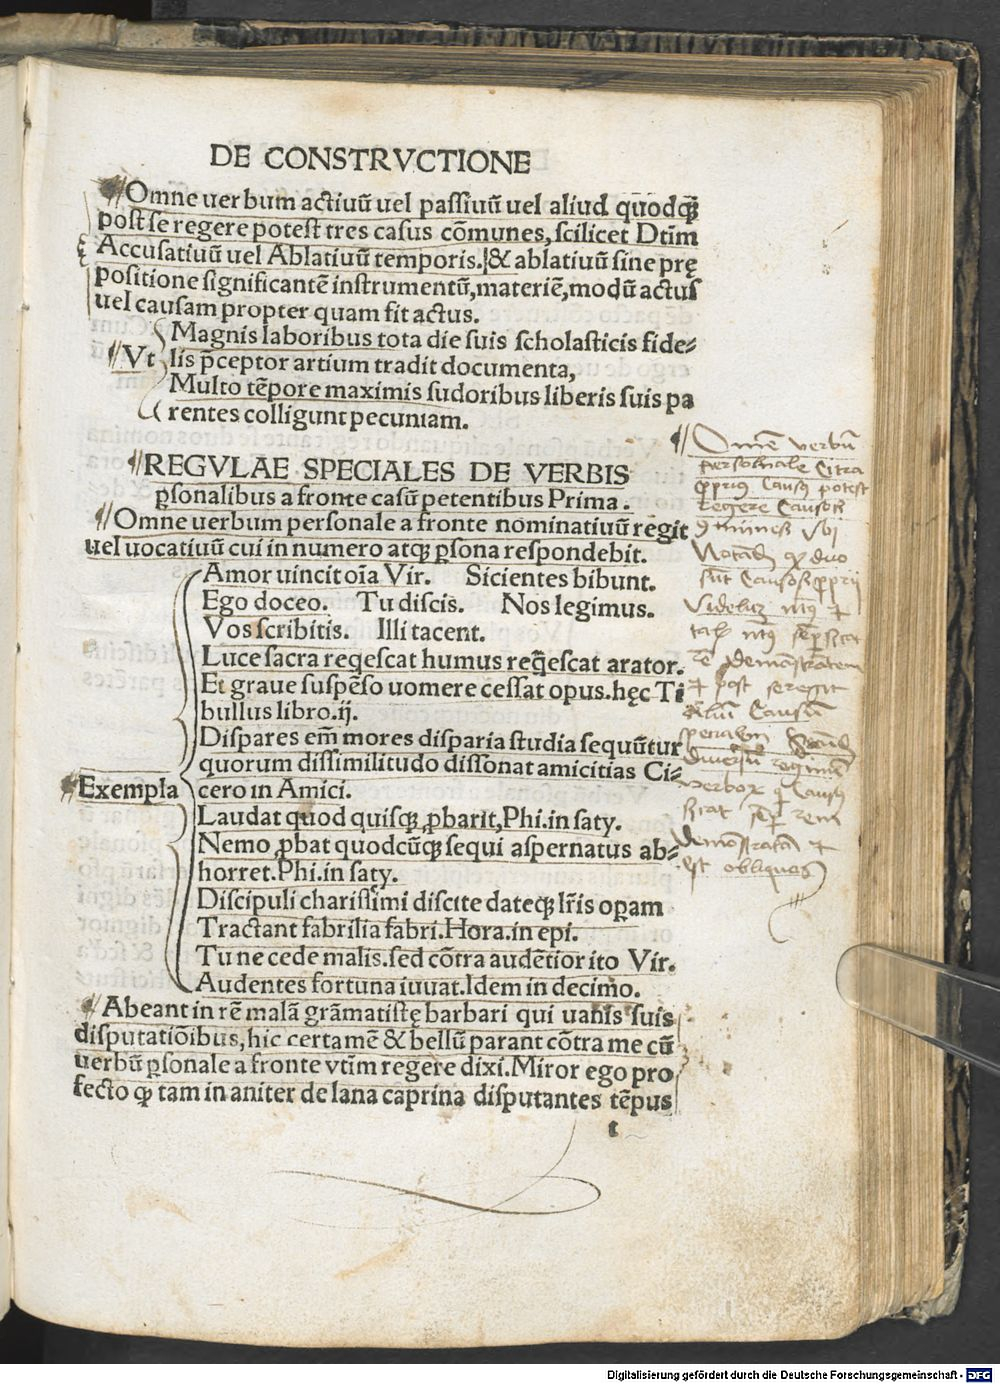 DE CONSTRVCTIONE
Omne uerbum actiuũ uel passiuũ uel aliud quodcꝗ̃
post se regere potest tres casus cõmunes, scilicet Dtĩm
Accusatiuũ uel Ablatiuũ temporis. & ablatiuũ sine prę
positione significantẽ instrumentũ, materiẽ, modũ actus
uel causam propter quam fit actus.
Magnis laboribus tota die suis scholasticis fide⸗
Vt lis p̃ceptor artium tradit documenta,
Multo tẽpore maximis sudoribus liberis suis pa
rentes colligunt pecuniam.
REGVLAE SPECIALES DE VERBIS
ꝑsonalibus a fronte casũ petentibus Prima.
Omne uerbum personale a fronte nominatiuũ regit
uel uocatiuũ cui in numero atqꝫ ꝑsona respondebit.
Amor uincit oĩa Vir. Sicientes bibunt.
Ego doceo. Tu discis. Nos legimus.
Vos scribitis. Illi tacent.
Luce sacra reqescat humus reqescat arator.
Et graue suspẽso uomere cessat opus. hęc Ti
bullus libro .ij.
Dispares em̃ mores disparia studia sequũtur
quorum dissimilitudo dissonat amicitias Ci⸗
Exempla cero in Amici.
Laudat quod quisqꝫ ꝓbarit, Phi. in saty.
Nemo ꝓbat quodcũqꝫ sequi aspernatus ab⸗
horret. Phi. in saty.
Discipuli charissimi discite dateqꝫ lr̃is oꝑam
Tractant fabrilia fabri. Hora. in epi.
Tu ne cede malis. sed cõtra audẽtior ito Vir.
Audentes fortuna iuuat. Idem in decimo.
Abeant in rẽ malã grãmatistę barbari qui uanis suis
disputatiõibus, hic certamẽ & bellũ parant cõtra me cũ
uerbũ ꝑsonale a fronte vtĩm regere dixi. Miror ego pro
fecto ꝙ tam inaniter de lana caprina disputantes tẽpus
t
Omẽ verbũ
personale Citra
ꝓprius Casus potest
Regere
duo
sũt
et post se regit
Aliũ Casum
rem
et
est obliquus
Digitalisierung gefördert durch die Deutsche Forschungsgemeinschaft - DFG